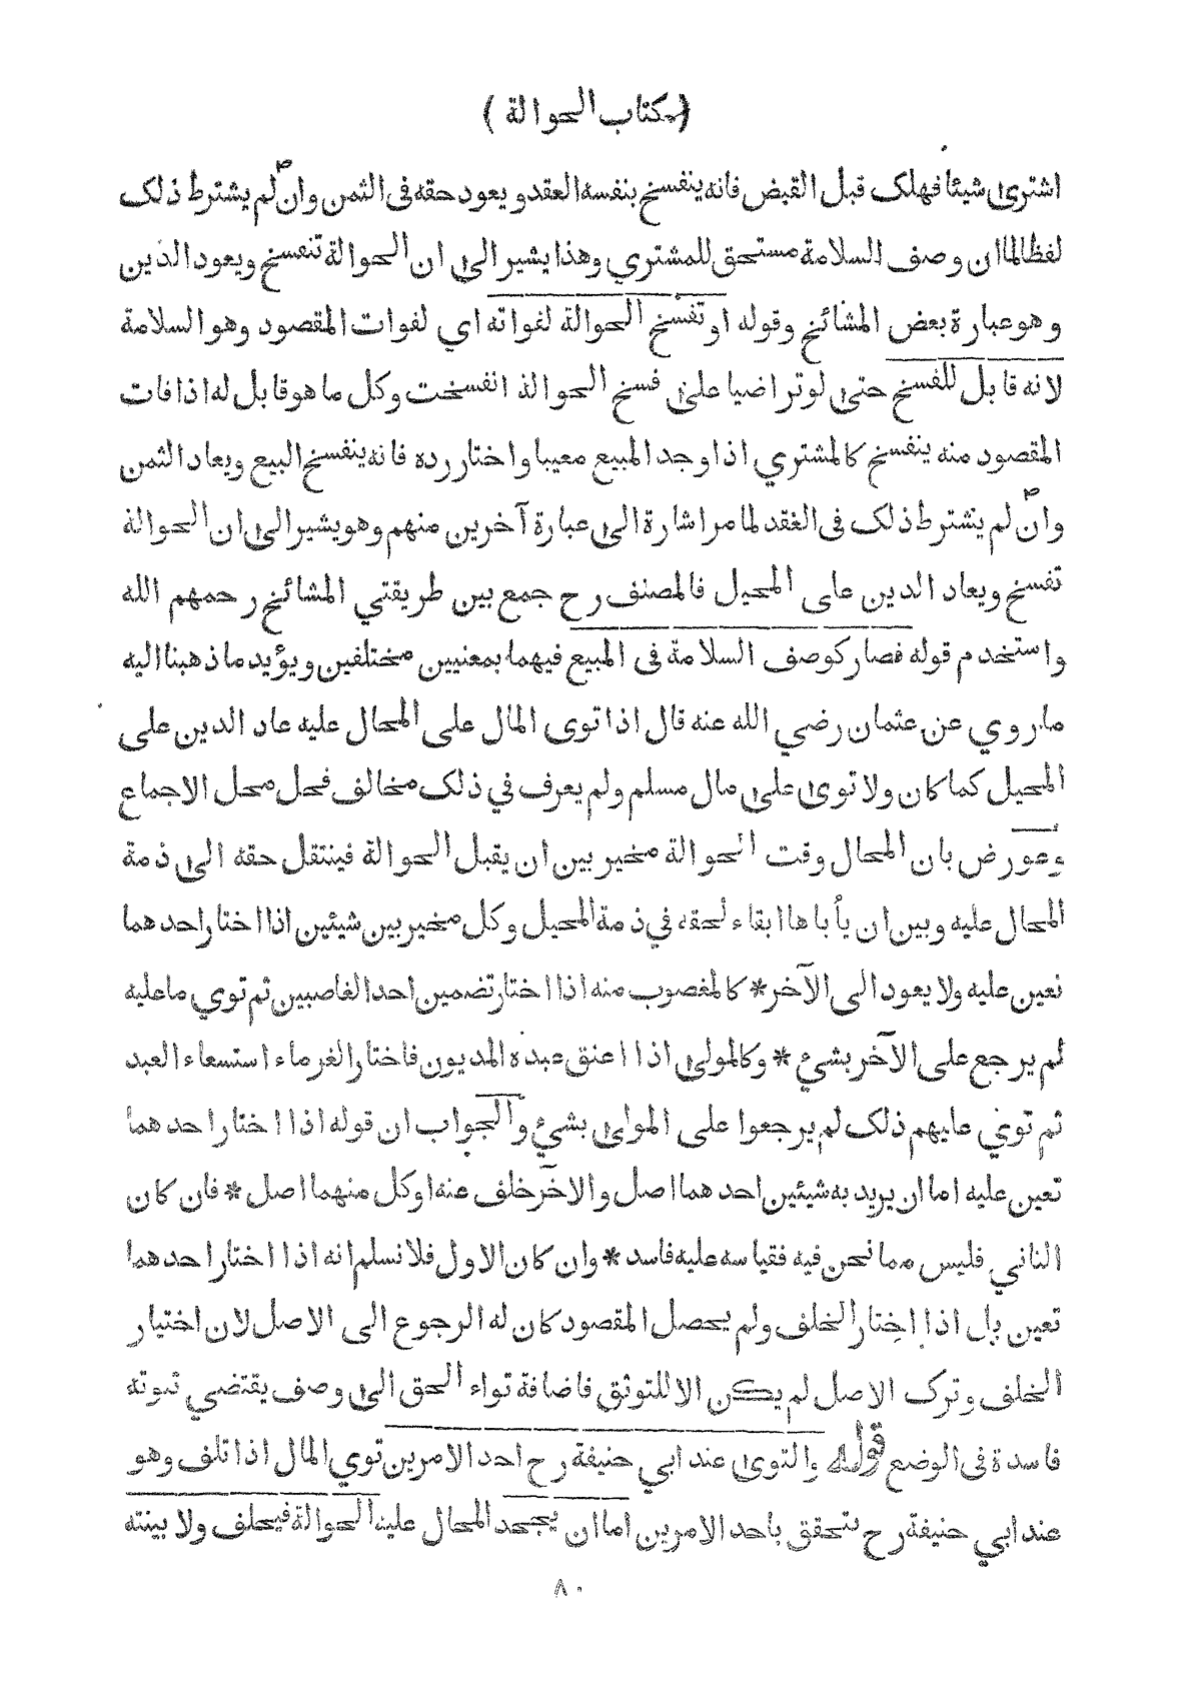 ( كتاب الحوالة )
اشترى شيئا فهلك قبل القبض فانه ينفسخ بنفسه العقد و يعود حقه فى الثمن وان لم يشترط ذلك
لفظا لما ان وصف السلامة مستحق للمشتري وهذا يشير الى ان الحوالة تنفسخ ويعود الدين
وهو عبارة بعض المشائخ وقوله او تفسخ الحوالة لفواته اي لفوات المقصود وهو السلامة
لانه قابل للفسخ حتى لو تراضيا على فسخ الحوالة انفسخت وكل ما هو قابل له اذا فات
المقصود منه ينفسخ كالمشتري اذا وجد المبيع معيبا واختار رده فانه ينفسخ البيع ويعاد الثمن
وان لم يشترط ذلك فى العقد لما مر اشارة الى عبارة آخرين منهم وهو يشير الى ان الحوالة
تفسخ ويعاد الدين على المحيل فالمصنف رح جمع بين طريقتي المشائخ رحمهم الله
واستخدم قوله فصار كوصف السلامة فى المبيع فيهما بمعنيين مختلفين ويؤيد ما ذهبنا اليه
ما روي عن عثمان رضي الله عنه قال اذا توى المال على المحال عليه عاد الدين على
المحيل كما كان ولا توى على مال مسلم ولم يعرف في ذلك مخالف فحل محل الاجماع
وعورض بان المحال وقت الحوالة مخير بين ان يقبل الحوالة فينتقل حقه الى ذمة
المحال عليه وبين ان يأباها ابقاء لحقه في ذمة المحيل وكل مخير بين شيئين اذا اختار احدهما
تعين عليه ولا يعود الى الآخر * كالمغصوب منه اذا اختار تضمين احد الغاصبين ثم توي ما عليه
لم يرجع على الآخر بشئ * وكالمولى اذا اعتق عبده المديون فاختار الغرماء استسعاء العبد
ثم توي عليهم ذلك لم يرجعوا على المولى بشئ والجواب ان قوله اذا اختار احدهما
تعين عليه اما ان يريد به شيئين احدهما اصل والآخر خلف عنه او كل منهما اصل * فان كان
الثاني فليس مما نحن فيه فقياسه عليه فاسد * وان كان الاول فلا نسلم انه اذا اختار احدهما
تعين بل اذا اختار الخلف ولم يحصل المقصود كان له الرجوع الى الاصل لان اختيار
الخلف وترك الاصل لم يكن الا للتوثق فاضافة تواء الحق الى وصف يقتضي ثبوته
فاسدة فى الوضع قوله والتوى عند ابي حنيفة رح احد الامرين توي المال اذا تلف وهو
عند ابي حنيفة رح يتحقق باحد الامرين اما ان يجحد المحال عليه الحوالة فيحلف ولا بينته
٨٠